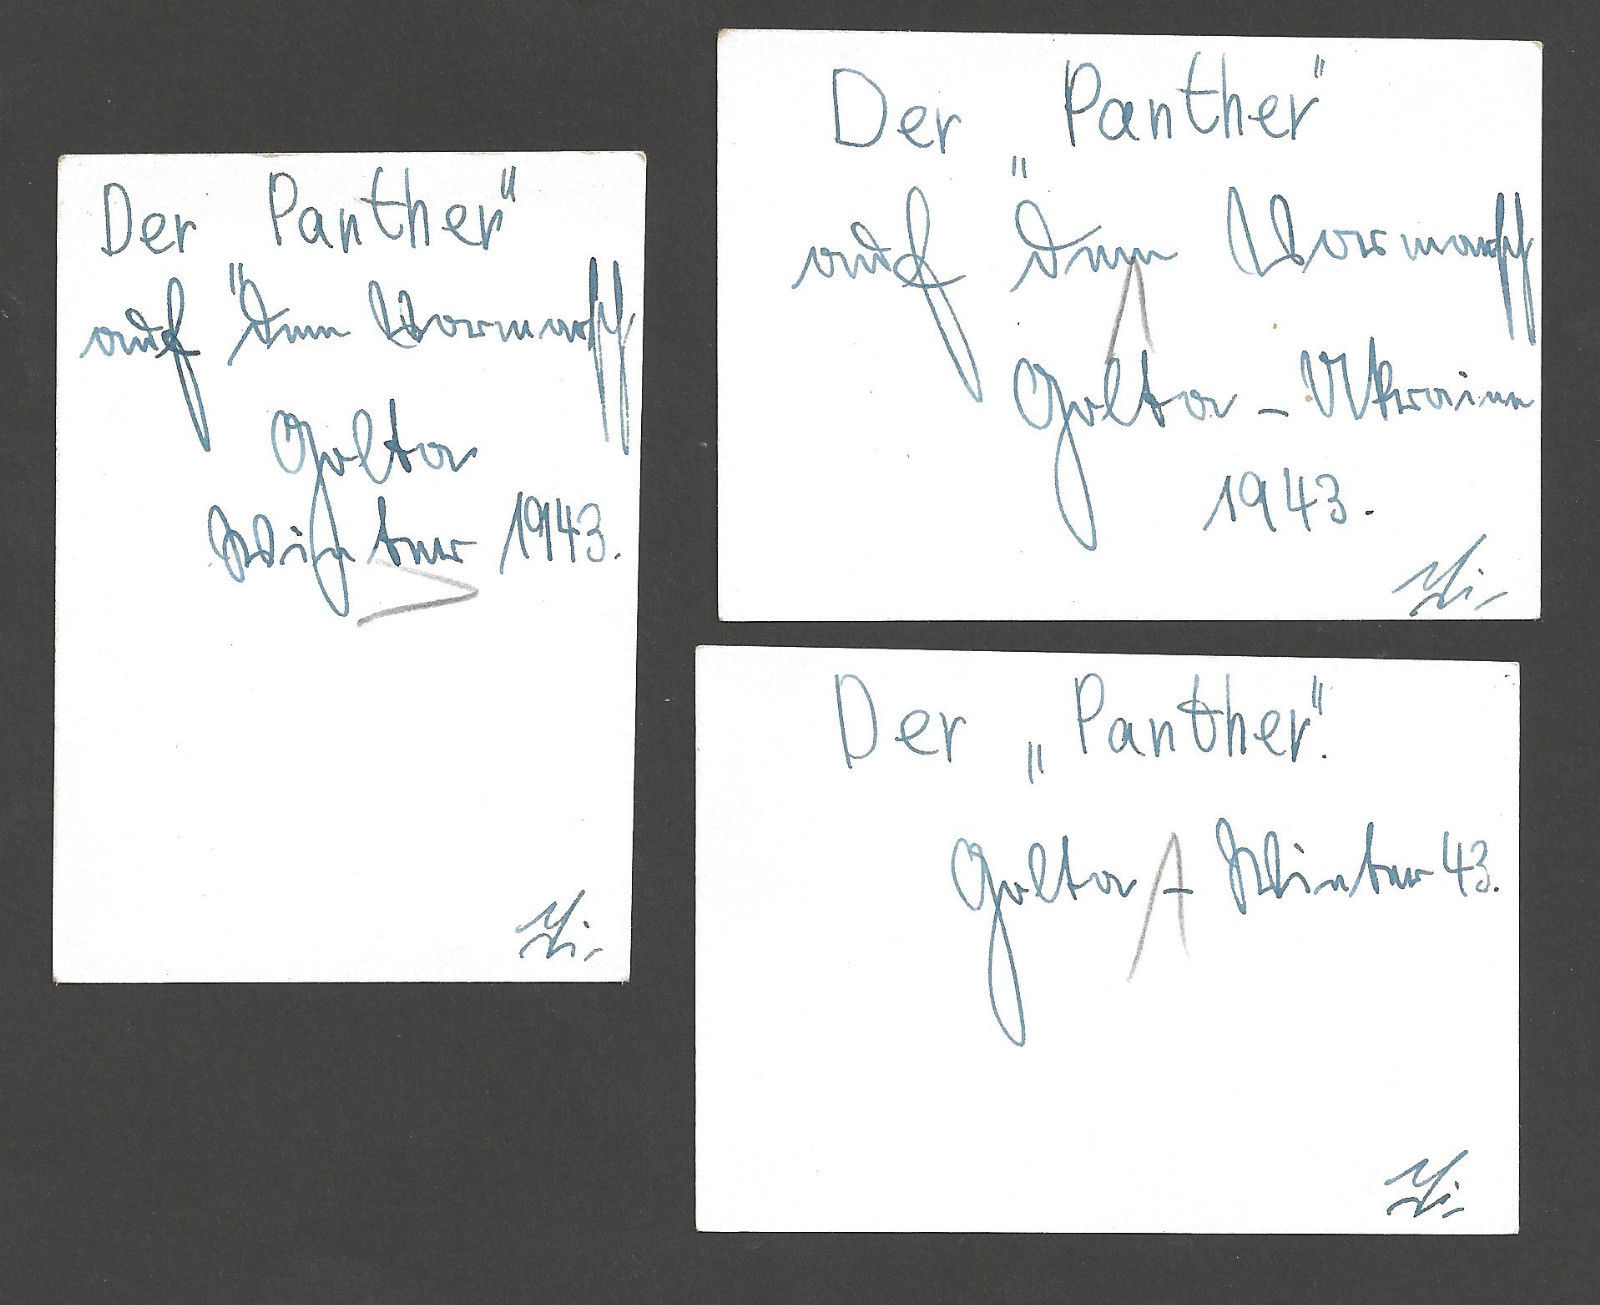 Der „Panther“
auf dem Vormarsch
Golta
Winter 1943.
Der „Panther“
auf dem Vormarsch
Golta – Ukraine
1943.
Der „Panther“.
Golta – Winter 43.